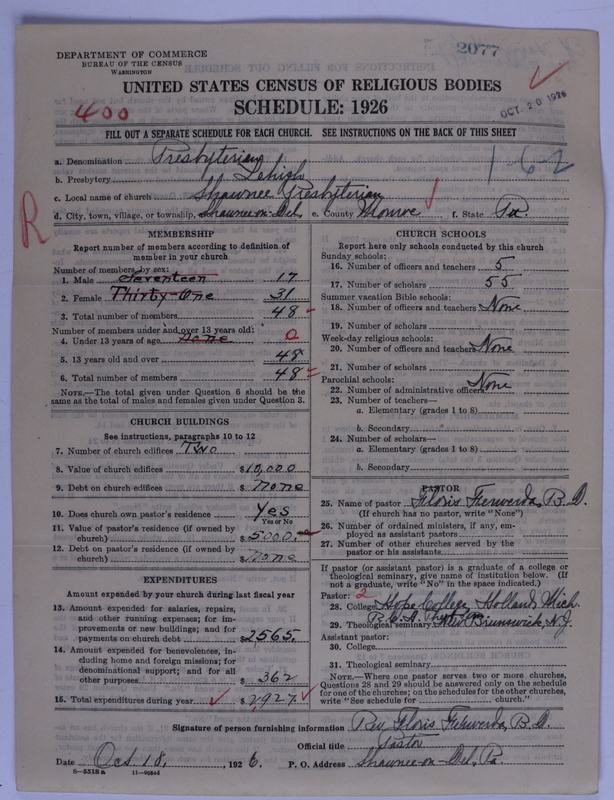 2077
DEPARTMENT OF COMMERCE
BUREAU OF THE CENSUS
WASHINGTON
UNITED STATES CENSUS OF RELIGIOUS BODIES
SCHEDULE: 1926
400
OCT 20 1926
FILL OUT A SEPARATE SCHEDULE FOR EACH CHURCH. SEE INSTRUCTIONS ON THE BACK OF THIS SHEET
a. Denomination Presbyterian
162
b. Presbytery Lehigh
c. Local name of church Shawnee Presbyterian
d. City, town, village, or township, Shawnee-on-Del. e. County Monroe f. State Pa.
R
MEMBERSHIP
Report number of members according to definition of member in your church
Number of members by sex:
1. Male Seventeen 17
2. Female Thirty-One 31
3. Total number of members 48
Number of members under and over 13 years old:
4. Under 13 years of age None 0
5. 13 years old and over 48
6. Total number of members 48
NOTE.—The total given under Question 6 should be the same as the total of males and females given under Question 3.
CHURCH BUILDINGS
See instructions, paragraphs 10 to 12
7. Number of church edifices Two
8. Value of church edifices $10,000
9. Debt on church edifices $ none
10. Does church own pastor's residence Yes
Yes or No
11. Value of pastor's residence (if owned by church) $5000.
12. Debt on pastor's residence (if owned by church) $none
EXPENDITURES
Amount expended by your church during last fiscal year
13. Amount expended for salaries, repairs, and other running expenses; for improvements or new buildings; and for payments on church debt $2565.
14. Amount expended for benevolences, including home and foreign missions; for denominational support; and for all other purposes $ 362
15. Total expenditures during year $2,927.
CHURCH SCHOOLS
Report here only schools conducted by this church
Sunday schools:
16. Number of officers and teachers 5
17. Number of scholars 55
Summer vacation Bible schools:
18. Number of officers and teachers None
19. Number of scholars
Week-day religious schools:
20. Number of officers and teachers None
21. Number of scholars
Parochial schools:
22. Number of administrative officers None
23. Number of teachers—
a. Elementary (grades 1 to 8)
b. Secondary
24. Number of scholars—
a. Elementary (grades 1 to 8)
b. Secondary
PASTOR
25. Name of pastor Floris Ferwerda, B.D.
(If church has no pastor, write "None")
26. Number of ordained ministers, if any, employed as assistant pastors
27. Number of other churches served by the pastor or his assistants
If pastor (or assistant pastor) is a graduate of a college or theological seminary, give name of institution below. (If not a graduate, write "No" in the space indicated.)
Pastor: 2
28. College Hope College, Holland, Mich.
29. Theological seminary New Brunswick, N.J.
Assistant pastor:
30. College
31. Theological seminary
NOTE.—Where one pastor serves two or more churches, Questions 28 and 29 should be answered only on the schedule for one of the churches; on the schedules for the other churches, write "See schedule for church."
Signature of person furnishing information Rev. Floris Ferwerda, B.D.
Official title Pastor
Date Oct. 18, 1926 P. O. Address Shawnee-on-Del., Pa
8—5518a 11—9054d